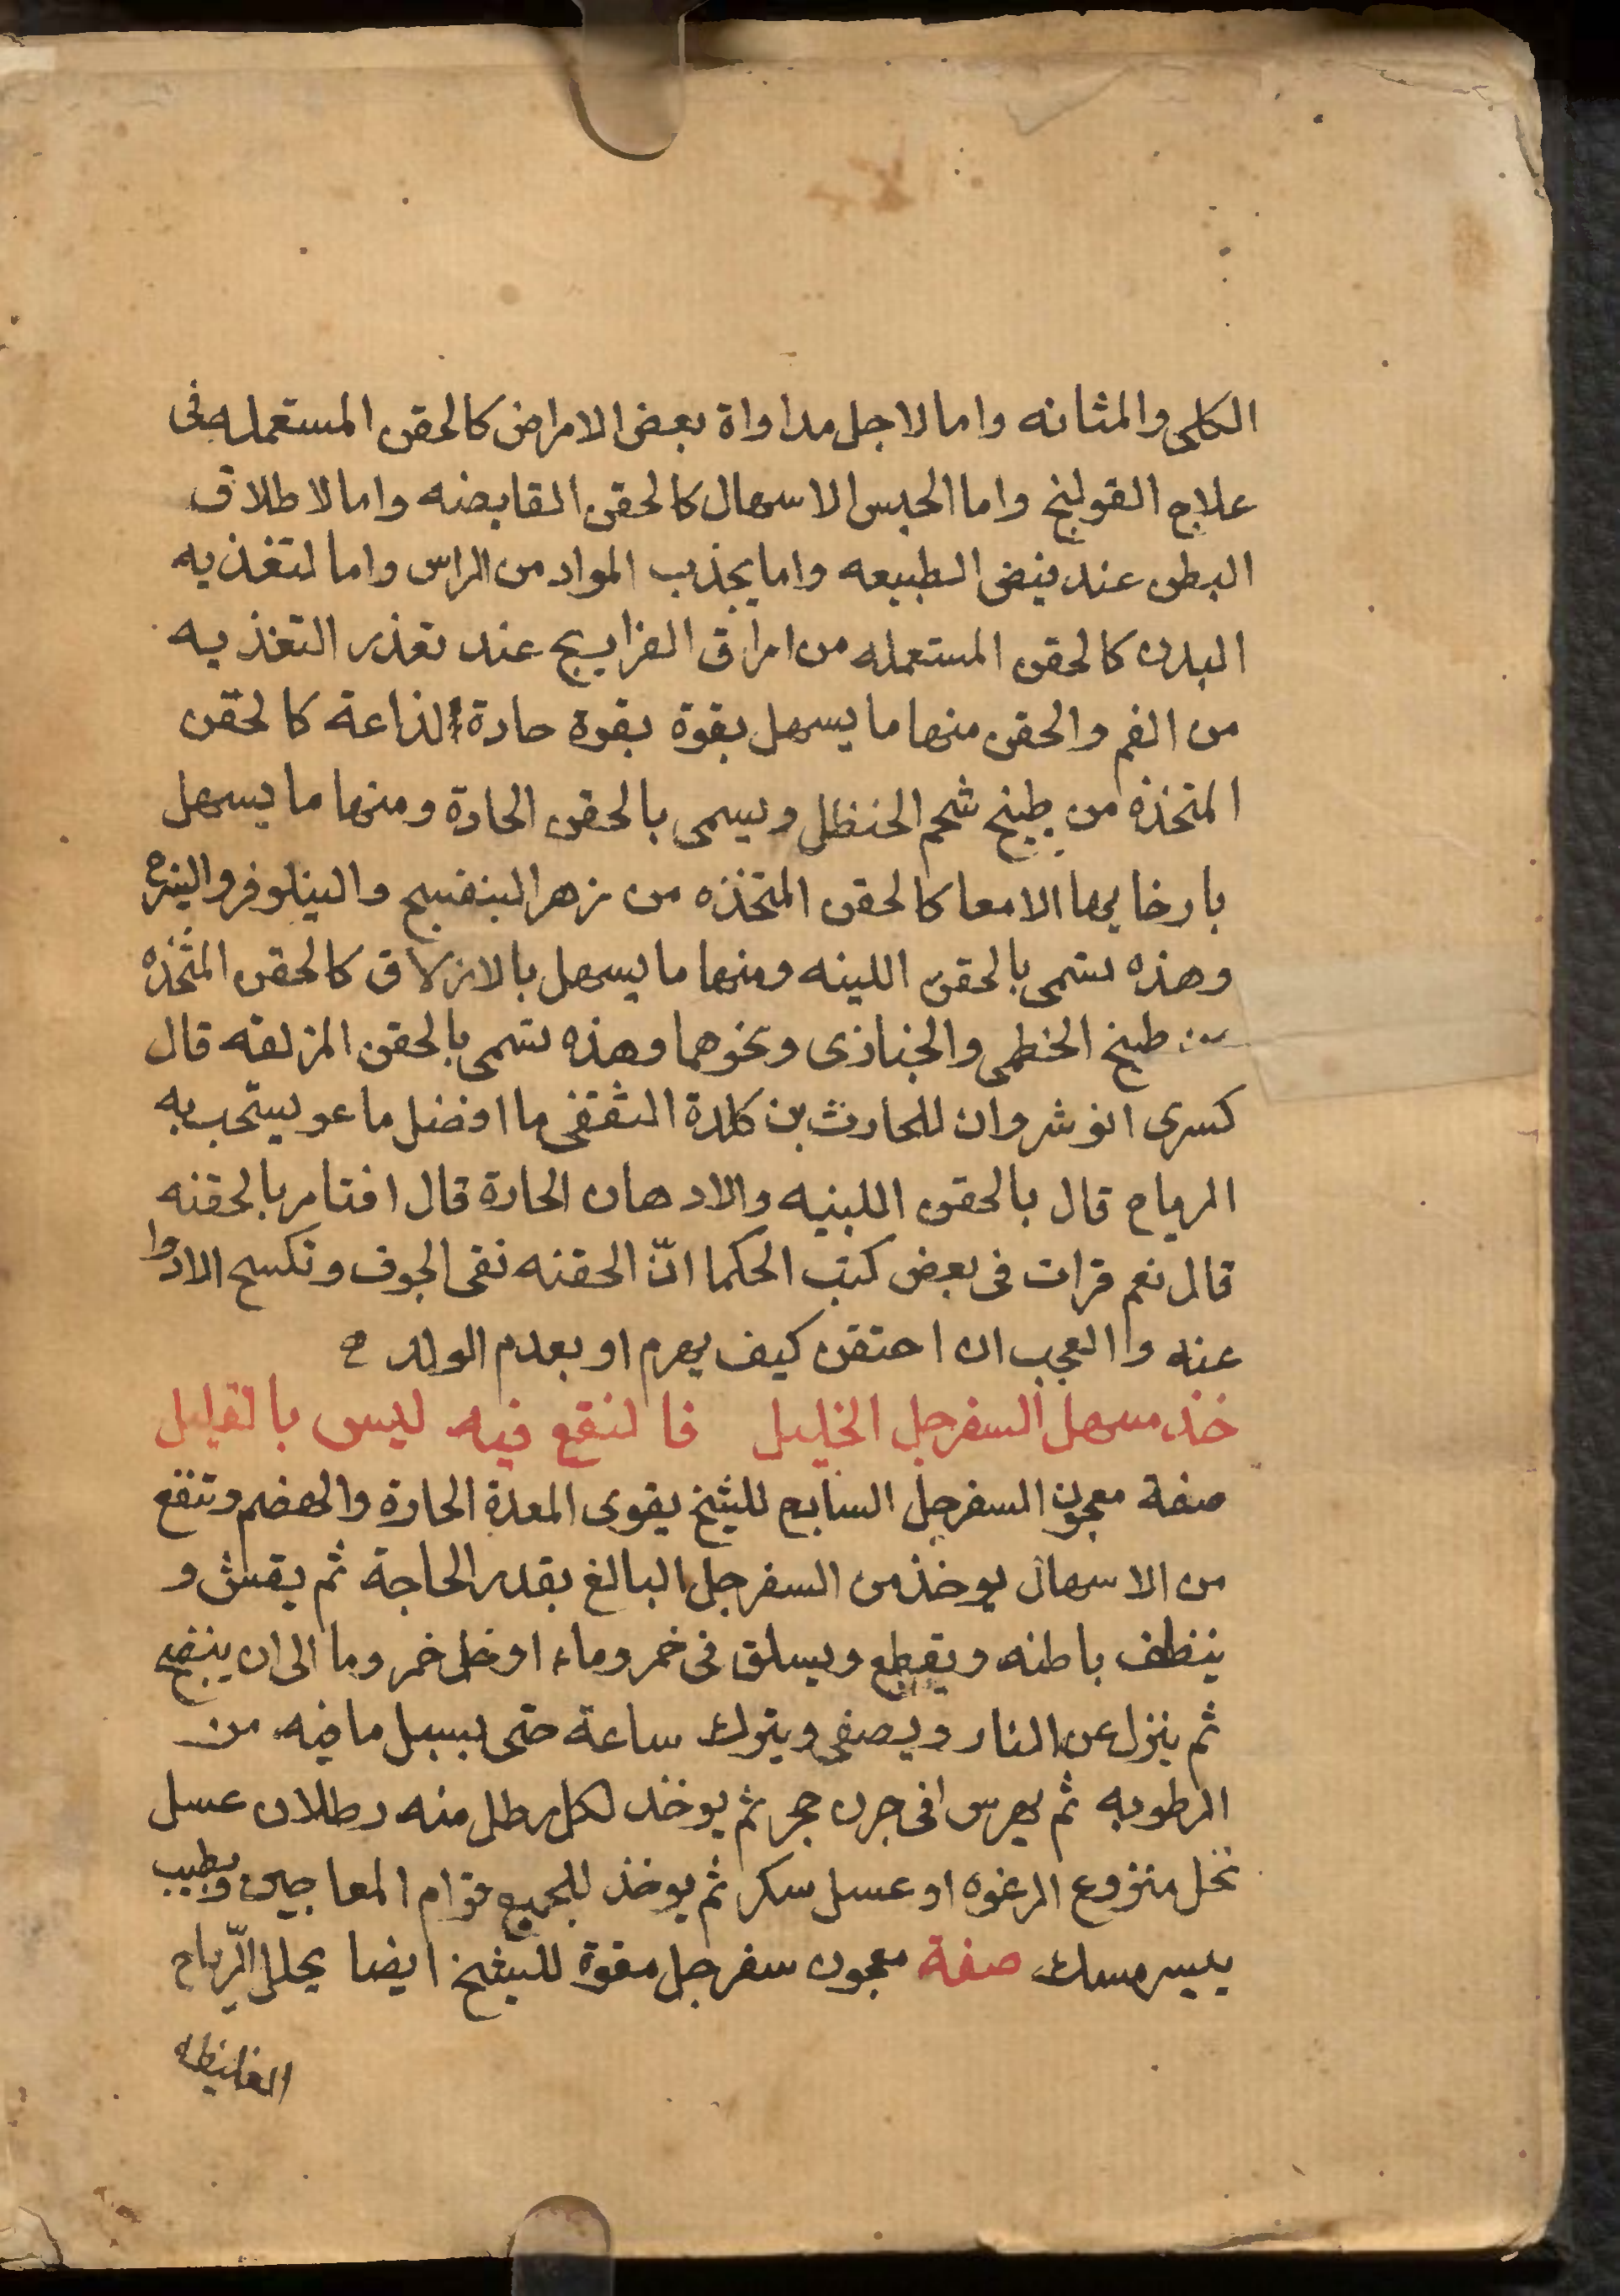 الكلى والمثانه واما لاجل مداواة بعض الامراض كالحقن المستعمله فى
علاج القولنج واما الحبس الاسهال كالحقن القابضه واما لاطلاق
البطن عند ينض الطبيعه واما يجذب المواد من الراس واما لتغذيه
البدن كالحقن المستعمله من امراق الفراريج عند تعذر التغذيه
من الفم والحقن منها ما يسهل بقوة بقوة حادة لذاعة كالحقن
المتخذه من طبخ شحم الحنظل ويسمى بالحقن الحادة ومنها ما يسهل
بارخايها الامعا كالحقن المتخذه من زهر البنفسج والنيلوفر
وهذه تسمى بالحقن اللينه ومنها ما يسهل بالازلاق كالحقن المتخذه
من طبخ الخطمى والخبازى ونحوهما وهذه تسمى بالحقن المزلقه قال
كسرى انوشروان للحارث بن كلدة الثقفى ما افضل ما عو يستحب به
الرياح قال بالحقن اللبنيه والادهان الحارة قال افتامر بالحقنه
قال نعم قرات فى بعض كتب الحكما انّ الحقنه نقى الجوف وتكسح الادوا
عنه واالعجب ان احتقن كيف يهرم او بعدم الولد
خذ مسهل السفرجل الخليل فالنقع فيه ليس بالقليل
صفة معجون السفرجل السابع للشيخ يقوى المعدة الحارة والهضم وتنفع
من الاسهال يوخذ من السفرجل البالغ بقدر الحاجة ثم يقشر و
ينظف باطنه ويقطع ويسلق فى خمر وماء او خل خمر وما الى ان ينضج
ثم ينزل عن النار ويصفى ويترك ساعة حتى يسيل ما فيه من
الرطوبه ثم يهرس افى جرن حجر ثم يوخذ لكل رطل منه رطلان عسل
نحل منزوع الرغوه او عسل سكر ثم يوخذ للجميع قوام المعاجين ويطيب
بيسير مسك صفة معجون سفرجل مقوة للشيخ ايضا يحلل الرّياح
الغليظه